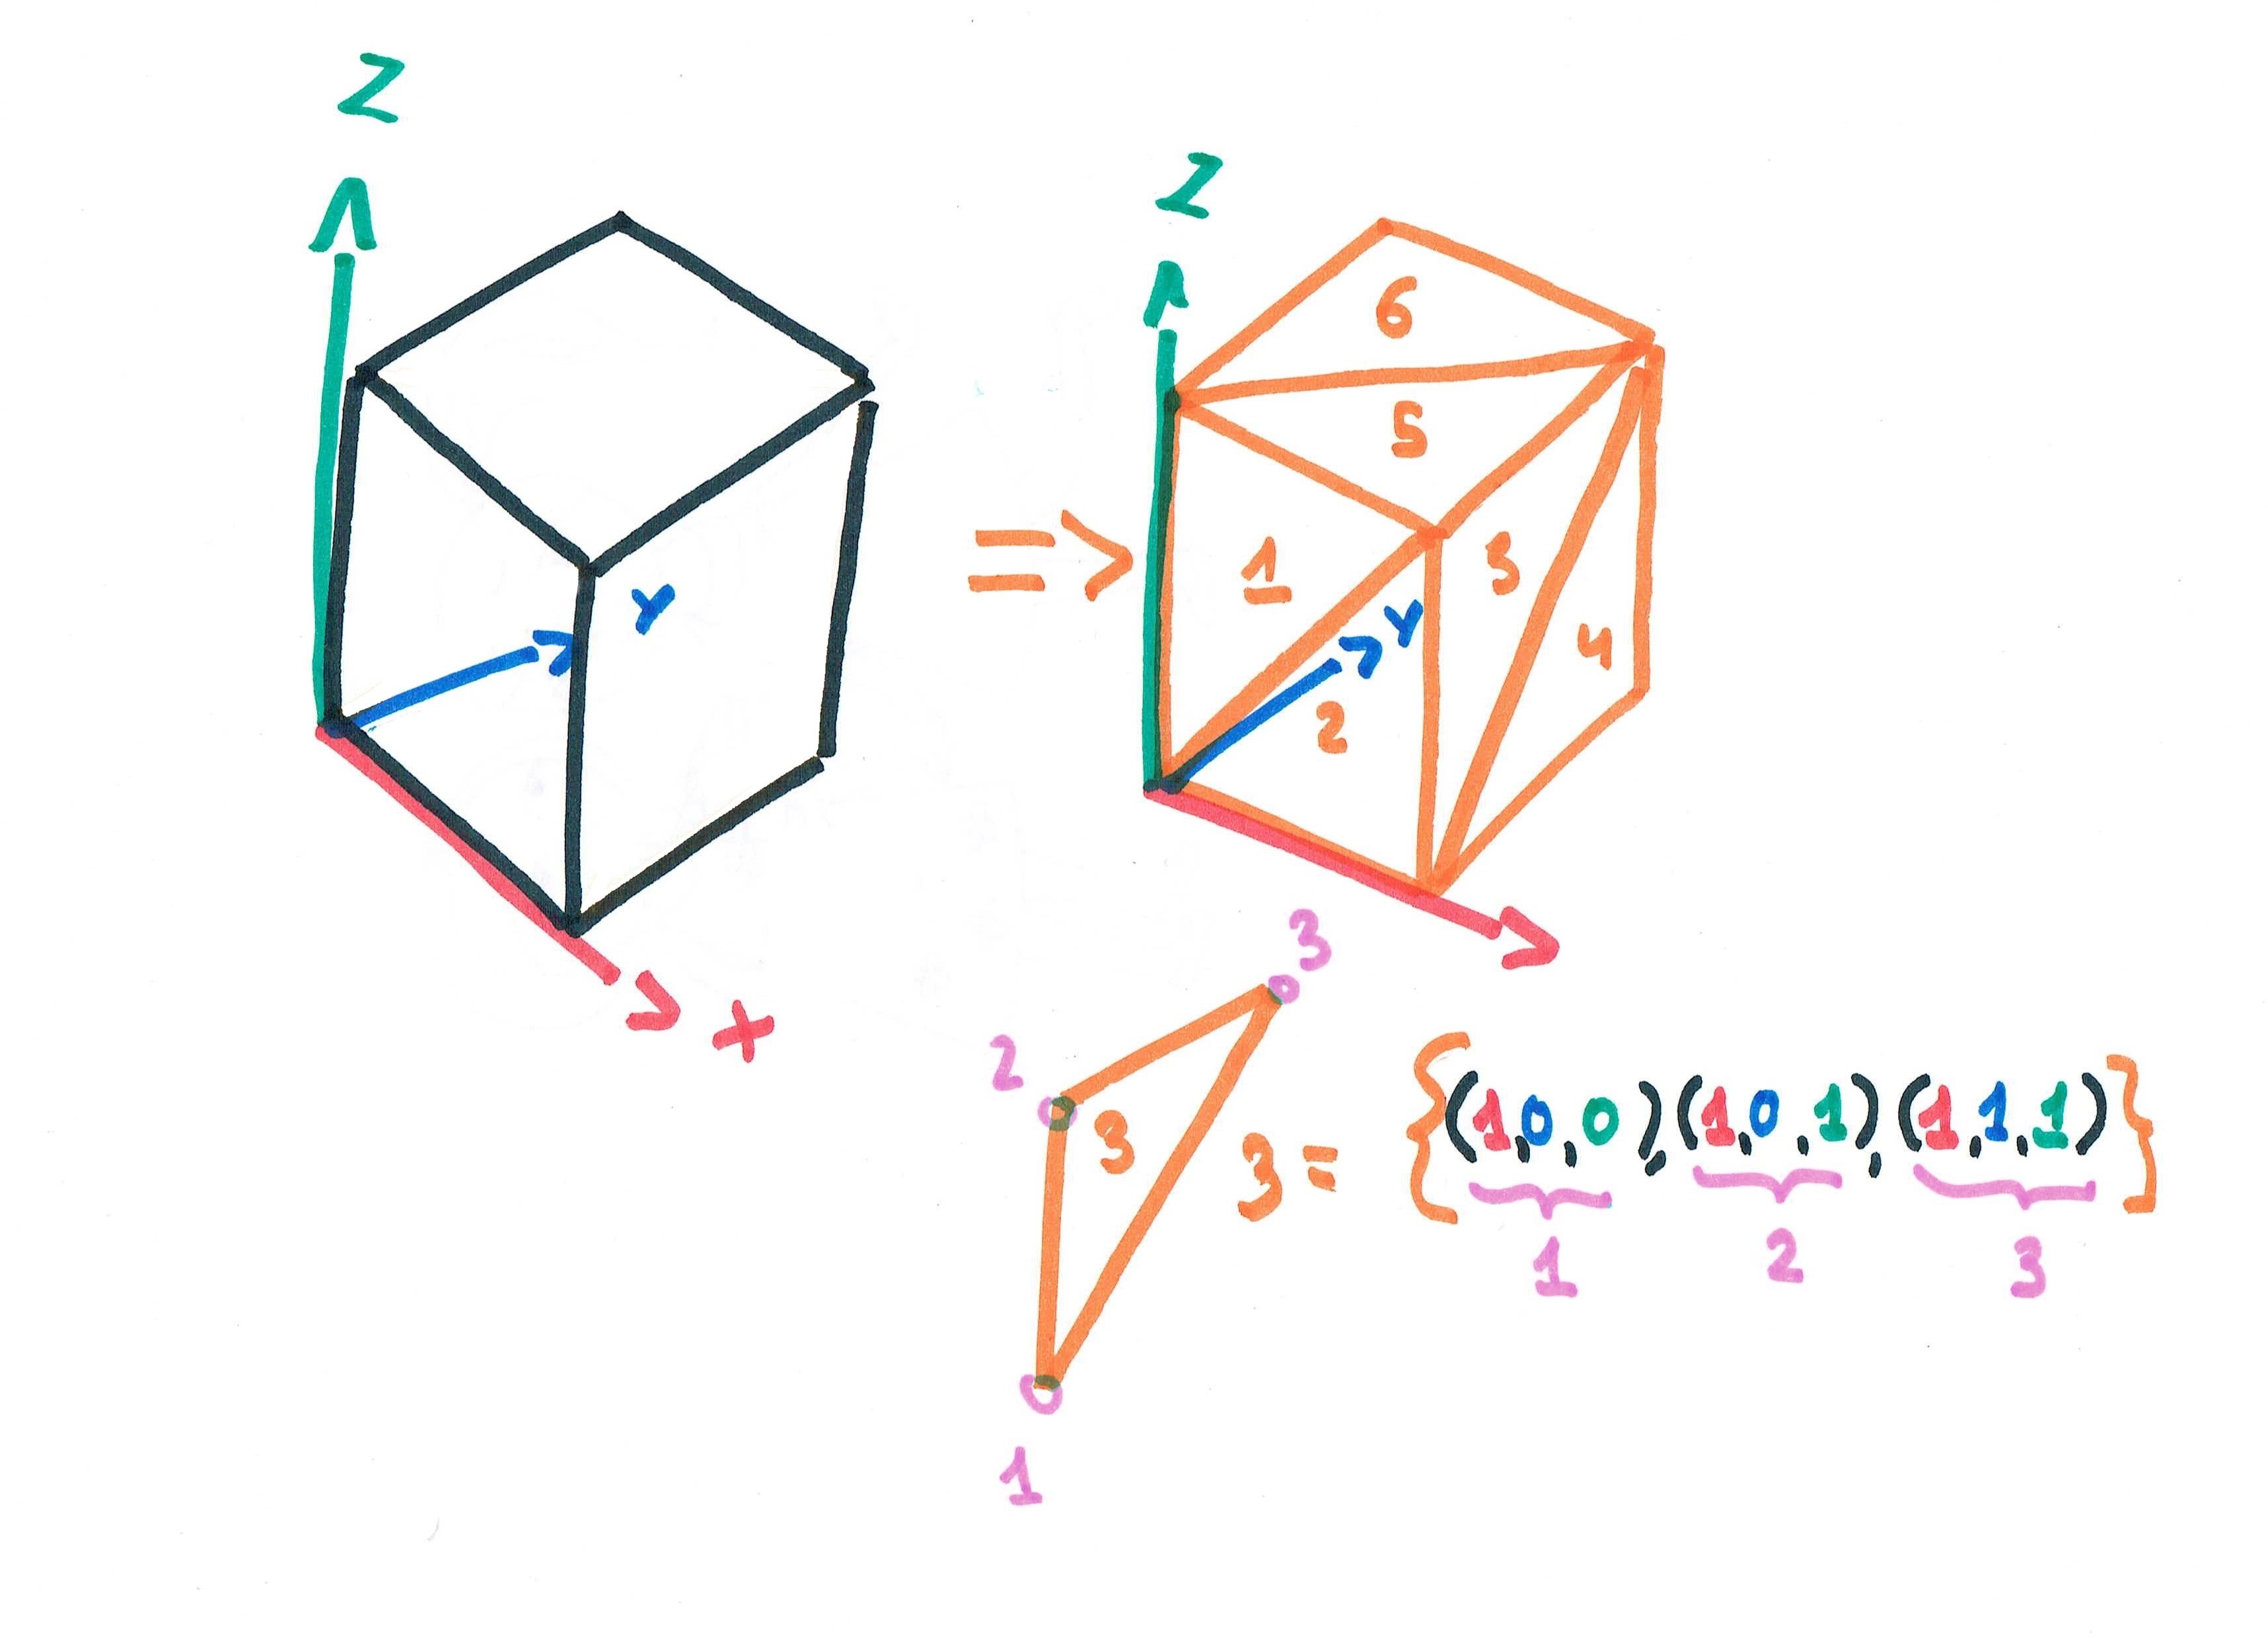 Z
Y
X
=>
Z
6
5
1
3
Y
4
2
3
2
3
1
3 = {(1,0,0),(1,0,1),(1,1,1)}
1
2
3